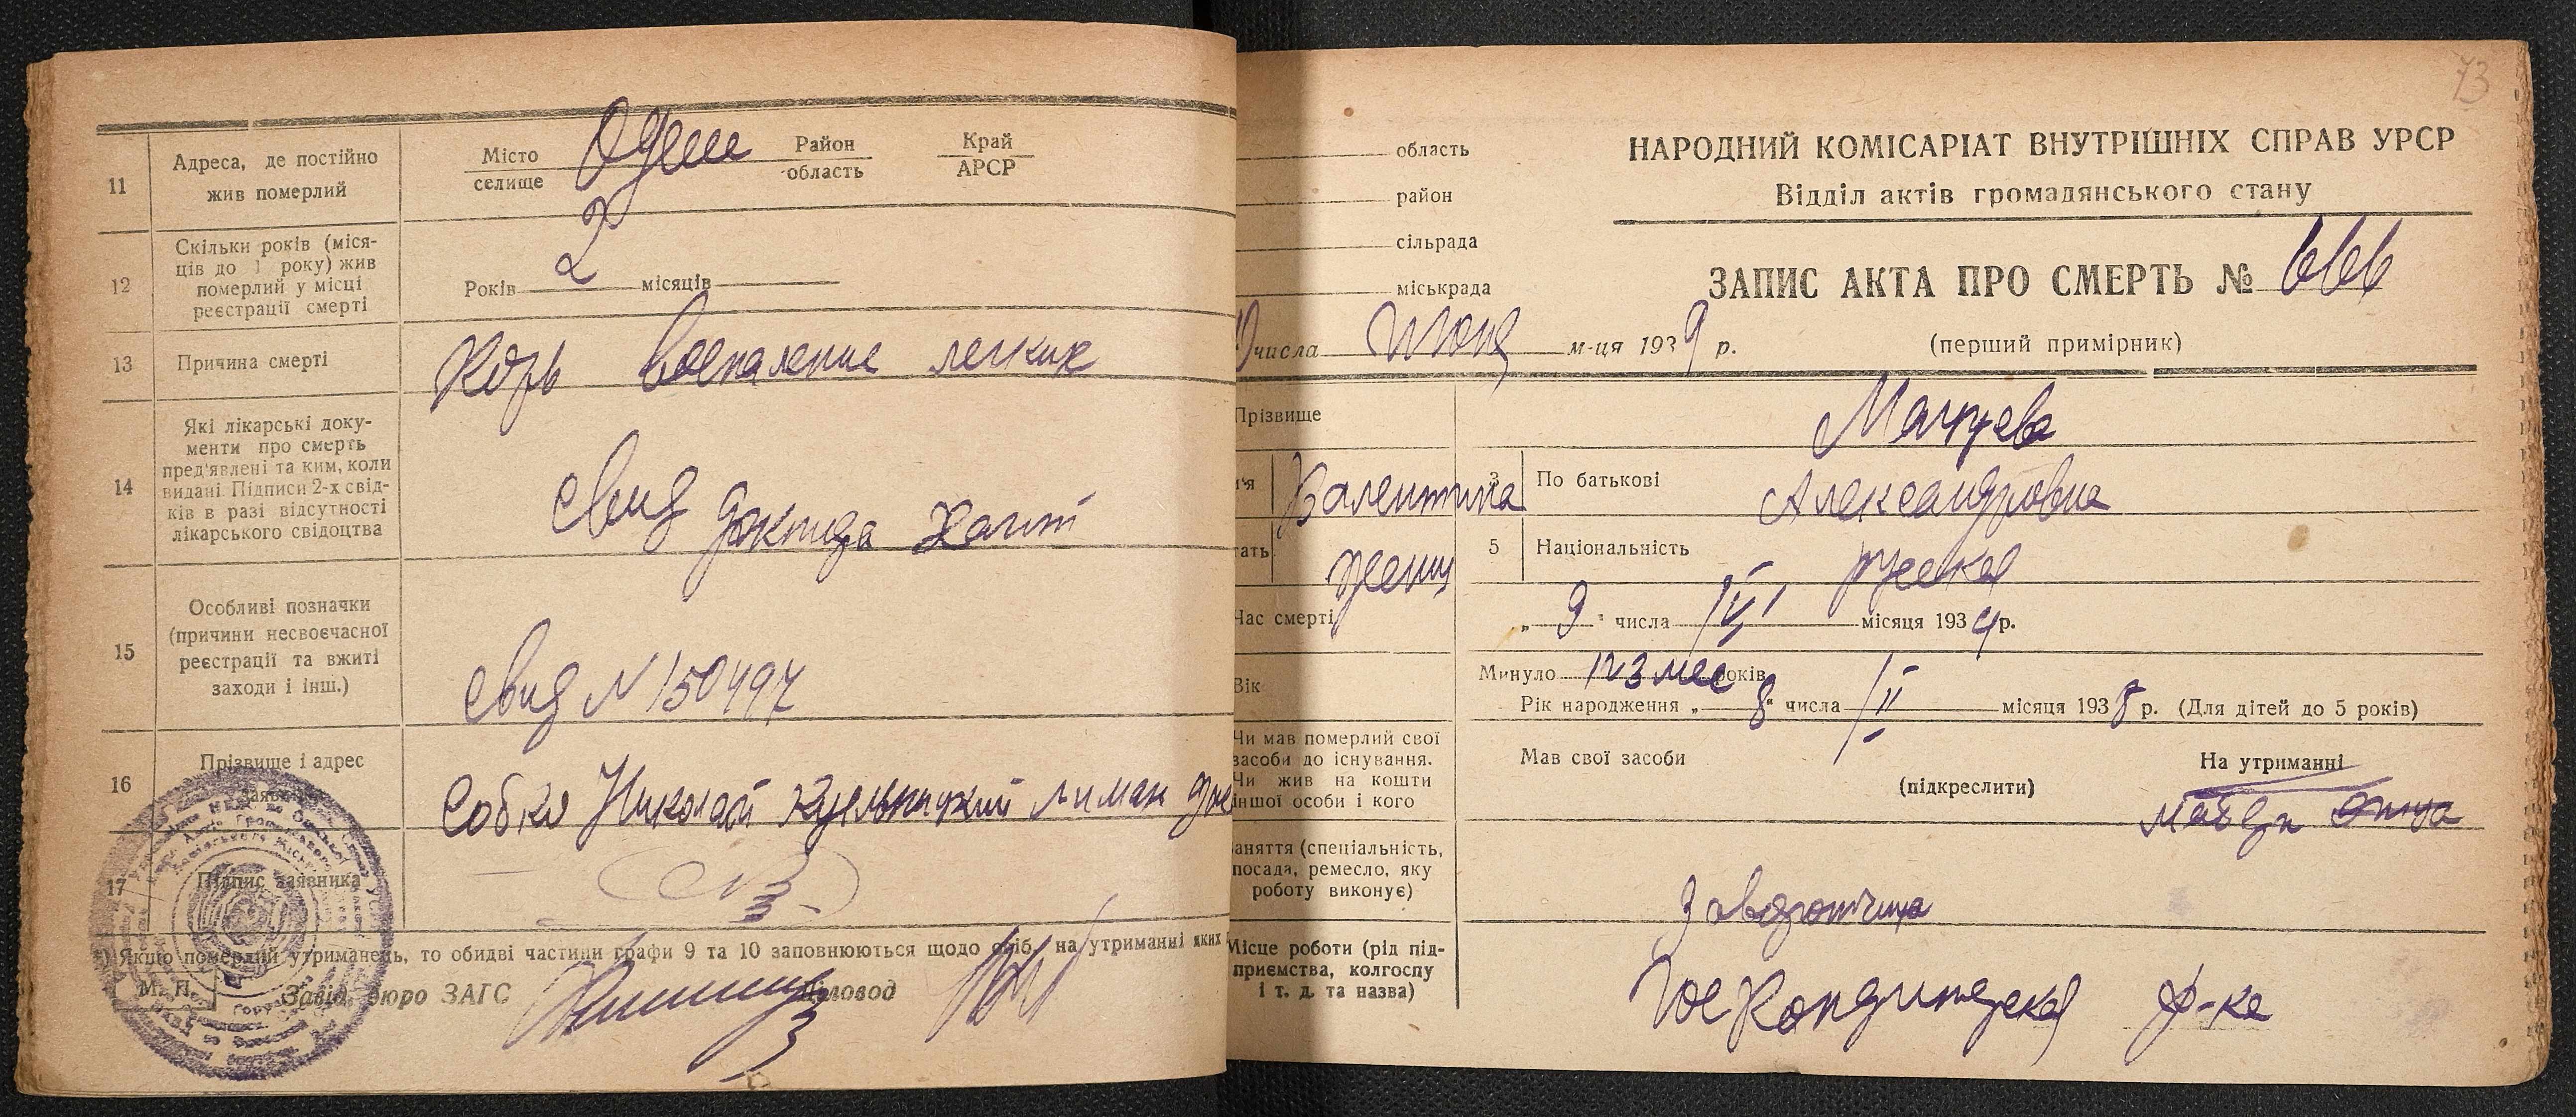 11
Адреса, де постійно
жив померлий
Місто
селище
Одеса
Район
область
Край
АРСР
12
Скільки років (міся-
ців до 1 року) жив
померлий у місці
реєстрації смерті
Років 2 місяців
13
Причина смерті
Корь воспаление легких
14
Які лікарські доку-
менти про смерть
пред'явлені та ким, коли
видані. Підписи 2-х свід-
ків в разі відсутності
лікарського свідоцтва
свид доктора
15
Особливі позначки
(причини несвоєчасної
реєстрації та вжиті
заходи і інш.)
свид N 150497
16
Прізвище і адрес
Собко Николай Куяльницкий лиман
17
Підпис заявника
*) Якщо померлий утриманець, то обидві частини графи 9 та 10 заповнюються щодо осіб, на утриманні яких
М. П.
Завід. бюро ЗАГС
Діловод
73
область
район
сільрада
міськрада
НАРОДНИЙ КОМІСАРІАТ ВНУТРІШНІХ СПРАВ УРСР
Відділ актів громадянського стану
ЗАПИС АКТА ПРО СМЕРТЬ № 666
(перший примірник)
числа м-ця 1939 р.
Прізвище
Валентина
3
По батькові
Александровна
жен
5
Національність
русская
Час смерті
„ 9 " числа місяця 193 р.
Вік
Минуло 1 г 3 мес років
Рік народження „ 8 " числа II місяця 1938 р. (Для дітей до 5 років)
Чи мав померлий свої
засоби до існування.
Чи жив на кошти
іншої особи і кого
Мав свої засоби
(підкреслити)
На утриманні
отца
заняття (спеціальність,
посада, ремесло, яку
роботу виконує)
Місце роботи (рід під-
приємства, колгоспу
і т. д. та назва)
Гос Кондитерская ф-ка